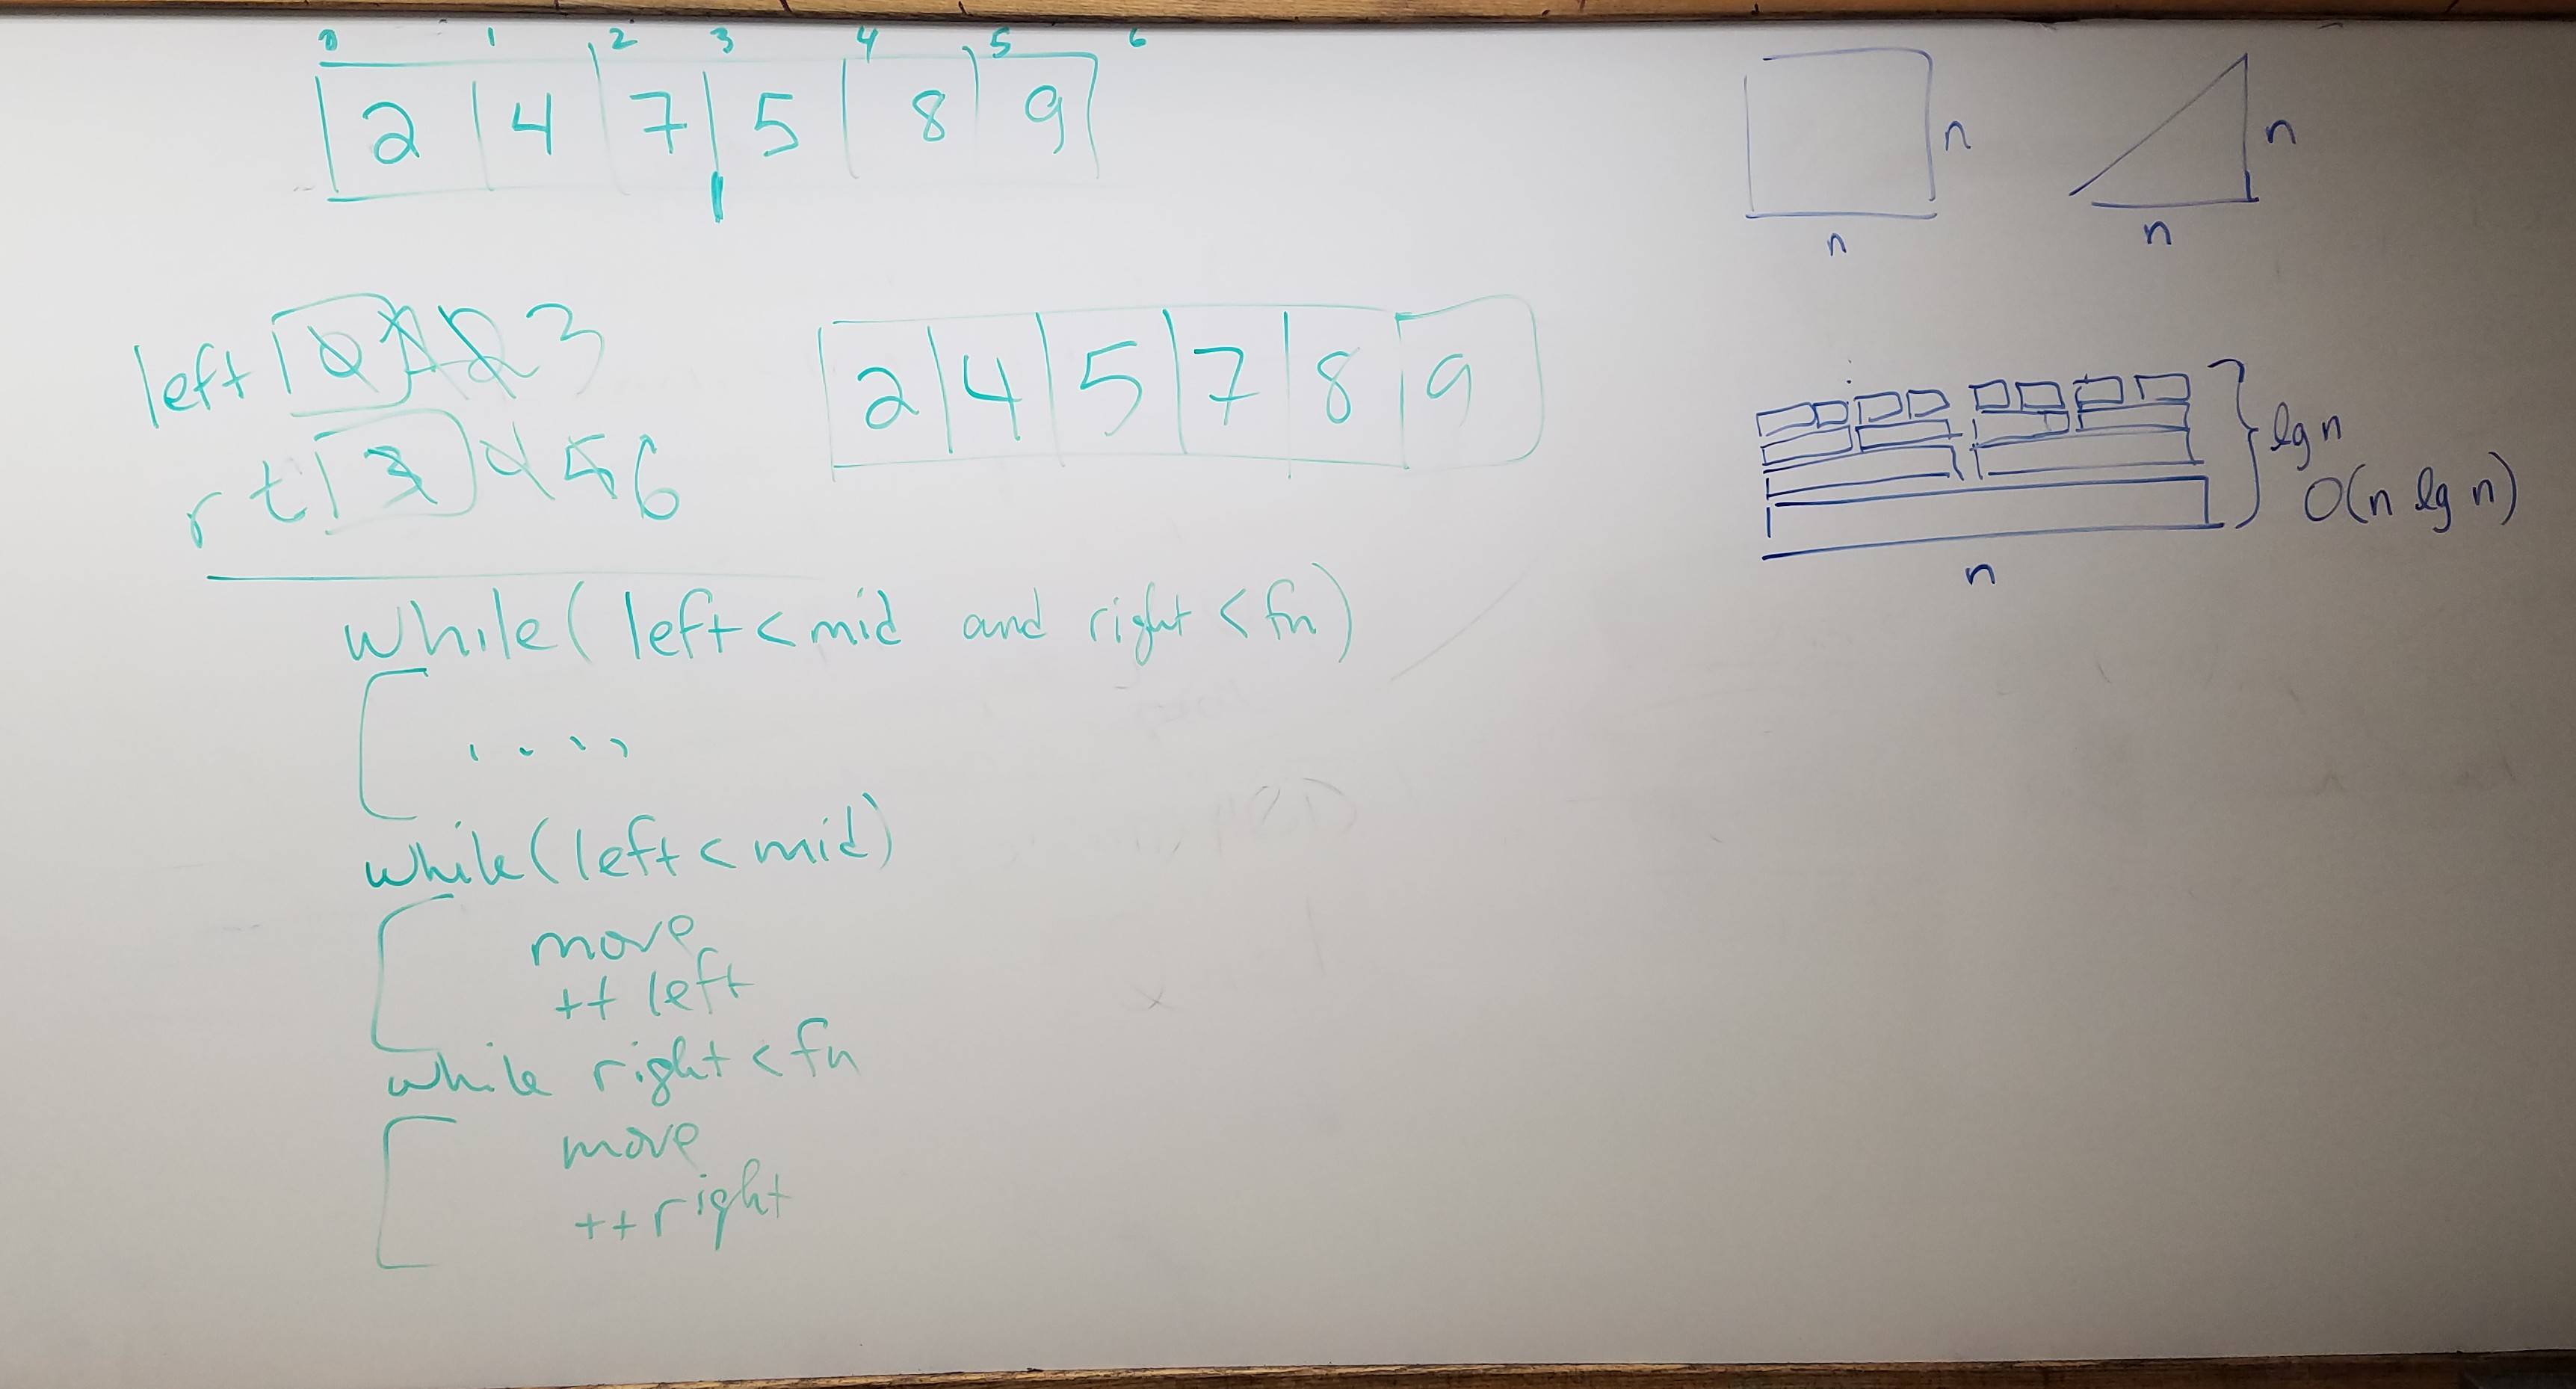 0 1 2 3 4 5 6
2 4 7 5 8 9
left 0 1 2 3
rt 3 4 5 6
2 4 5 7 8 9
while( left < mid and right < fn)
....
while(left < mid)
move
++ left
while right < fn
move
++ right
n
n
n
n
lg n
O(n lg n)
n